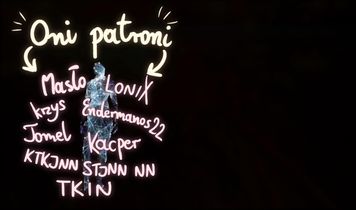 Oni patroni
Masło LONIX
krzys Endermanos22
Jomel Kacper
KTKJNN STJNN NN
TKIN